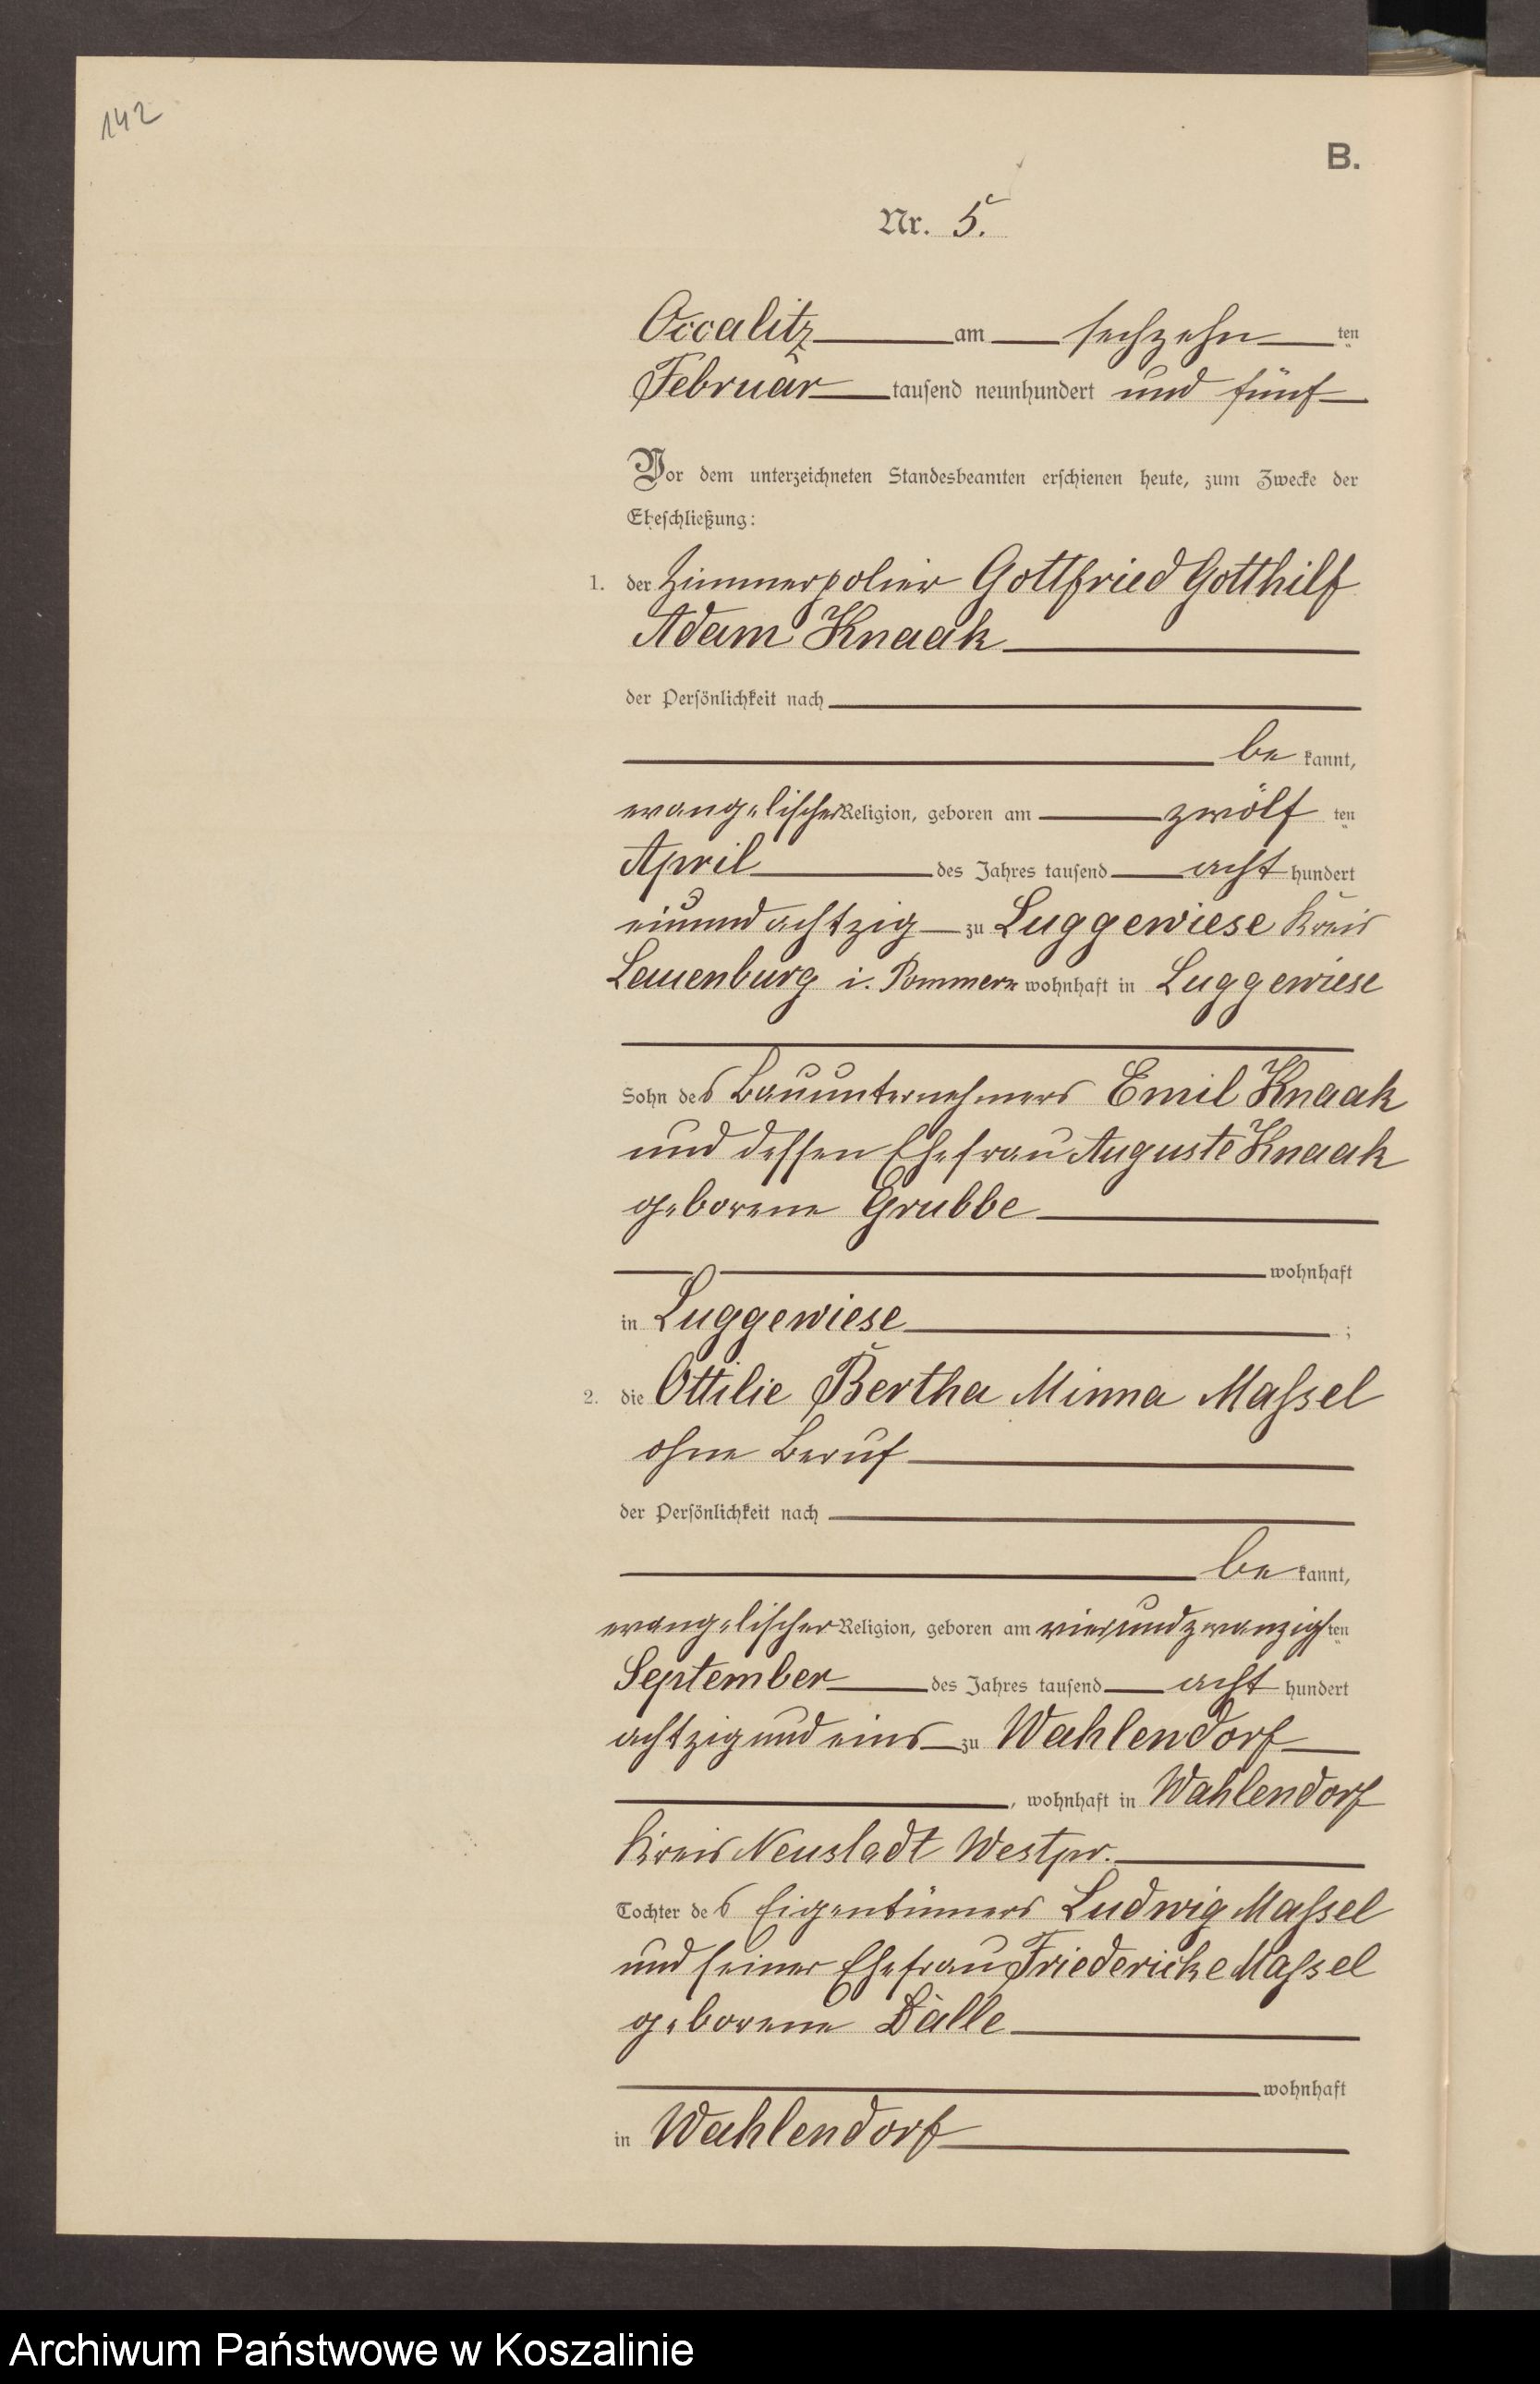 142
B.
Nr. 5.
Occalitz am sechzehn ten
Februar tausend neunhundert und fünf
Vor dem unterzeichneten Standesbeamten erschienen heute, zum Zwecke der
Eheschließung:
1. der Zimmerpolier Gottfried Gotthilf
Adam Knaak
der Persönlichkeit nach
be kannt,
evangelischer Religion, geboren am zwölf ten
April des Jahres tausend acht hundert
einundachtzig zu Luggewiese Kreis
Lauenburg i. Pommern wohnhaft in Luggewiese
Sohn des Bauunternehmers Emil Knaak
und dessen Ehefrau Auguste Knaak
geborene Grubbe
wohnhaft
in Luggewiese ;
2. die Ottilie Bertha Minna Maſsel
ohne Beruf
der Persönlichkeit nach
be kannt,
evangelischer Religion, geboren am vierundzwanzigsten
September des Jahres tausend acht hundert
achtzig und eins zu Wahlendorf
, wohnhaft in Wahlendorf
Kreis Neustadt Westpr.
Tochter des Eigentümers Ludwig Maſsel
und seiner Ehefrau Friedericke Maſsel
geborene Dalle
wohnhaft
in Wahlendorf
Archiwum Państwowe w Koszalinie